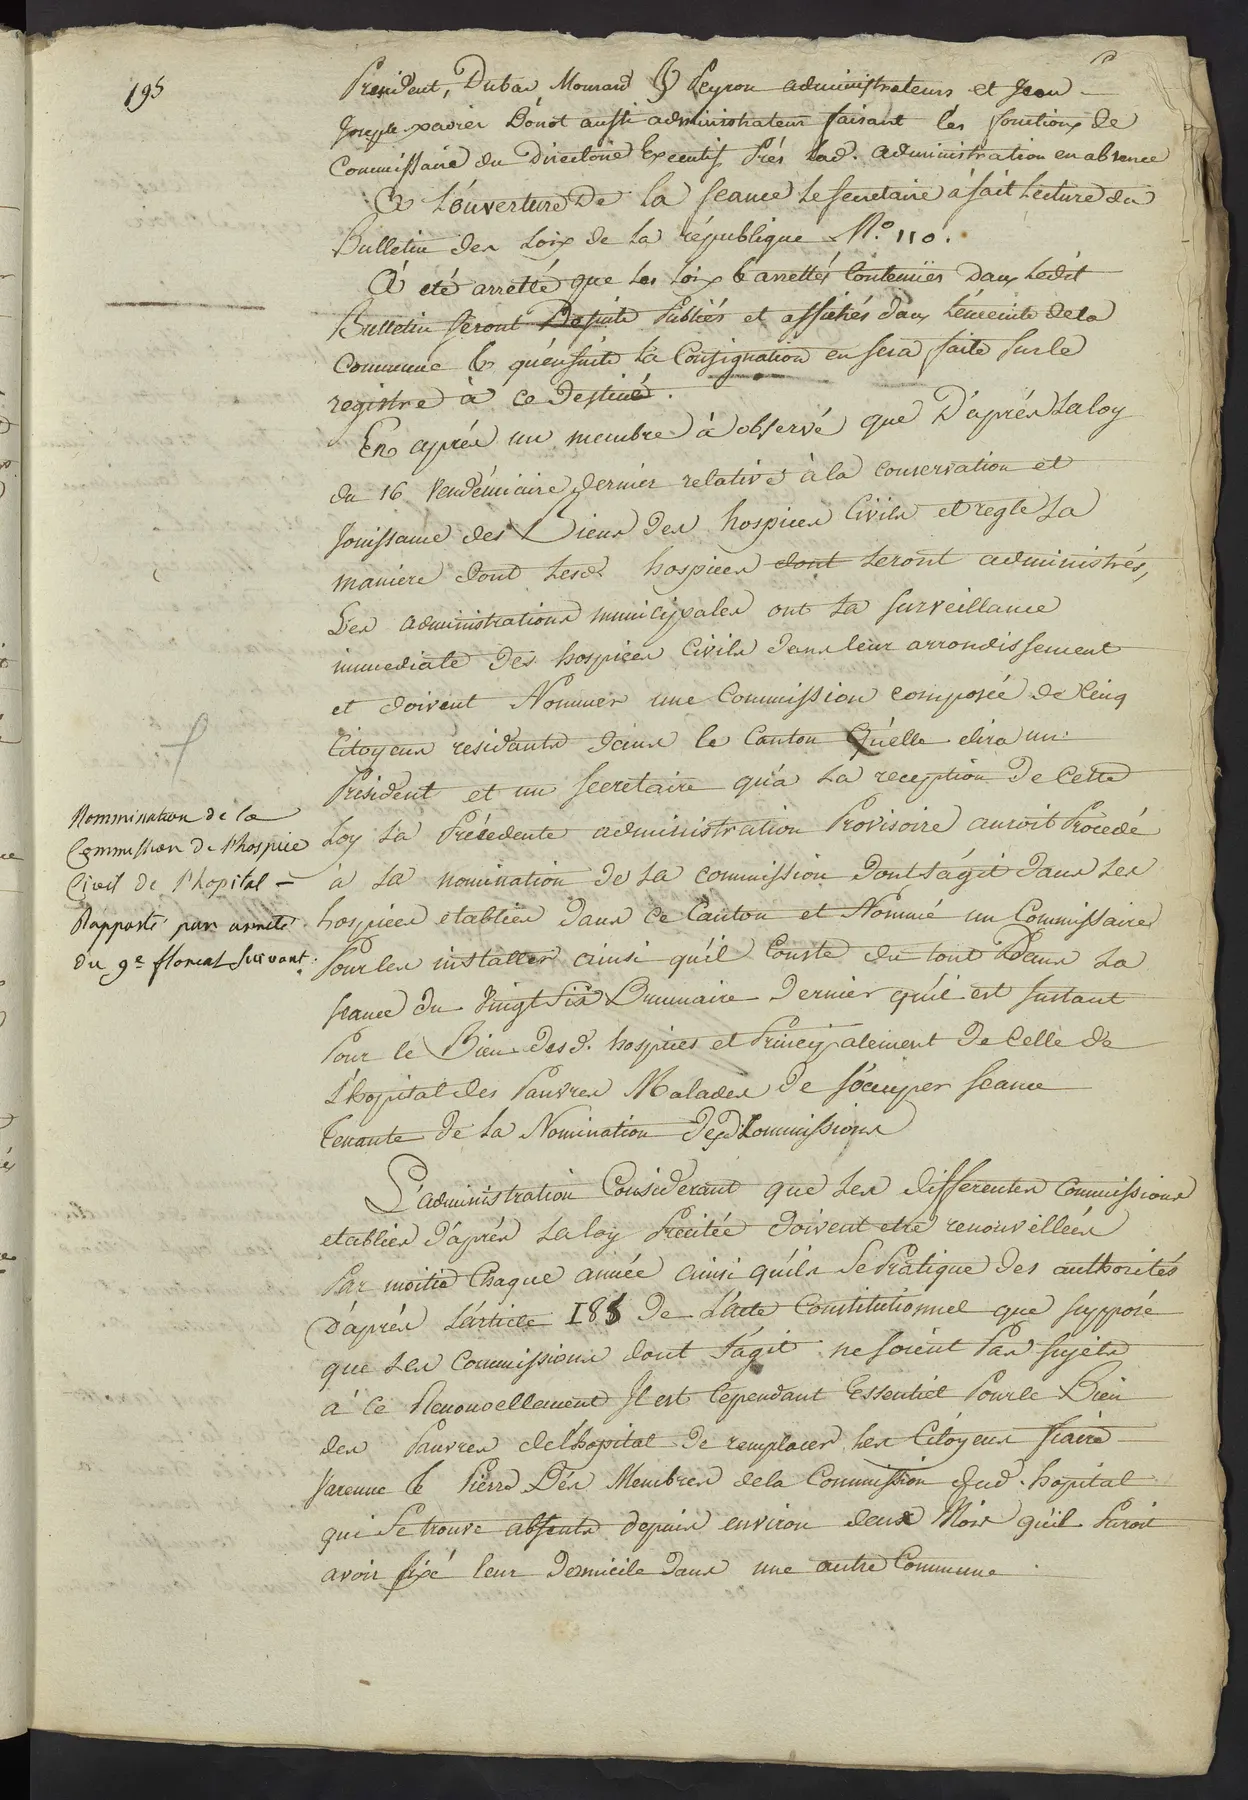 195
President, Dubar Mourard & Peyron administrateurs et Jean
Joseph xavier Bonot aussi administrateur faisant les fonctions de
Commissaire du Directoire Executif Près lad. administration en absence
A L'ouverture De la séance Le secretaire à fait Lecture du
Bulletin des Loix de la république N.º 110.
A été arretté que les Loix & arrettés Contenües dans Ledit
Bulletin seront De suite Publiés et affichés dans L'enceinte de la
Commune & qu'ensuite la Consignation en sera faite sur le
registre à ce destiné.
En après un membre à observé que D'après La loy
du 16 Vendémiaire dernier relative à la conservation et
Jouissance des Biens des hospices Civils et regle La
maniere dont Lesd. hospices dont seront administrés,
Les administrations municipales ont La surveillance
immediate des hospices Civils dans leur arrondissement
et doivent Nommer une Commission composée de Cinq
Citoyens residants dans le Canton Qu'elle elira un
Président et un secretaire qu'a La reception De Cette
Loy La Précedente administration Provisoire auroit Procedé
a La nomination de La commission Dont s'agit dans Les
hospices etablies dans ce Canton et Nommé un Commissaire
Pour les installer ainsi qu'il Conste du tout Dans La
séance du Vingt six Brumaire Dernier qu'il est Instant
Pour le Bien desd. hospices et Principalement De Celle de
L'hopital des Pauvres Malades De s'occuper séance
tenante de La Nomination Desd. Commissions
Nommination de la
Commission de l'hospice
Civil de l'hopital -
Rapporté par arreté
du 9e. floreal suivant.
L'administration Considerant que Les differentes Commissions
etablies d'après La loy Precitée doivent etre renouvellées
Par moitié Chaque année ainsi qu'ils se Pratique des authorités
D'après L'article 185 de L'acte Constitutionnel que supposé
que Les Commissions dont s'agit ne soient Pas sujets
à ce Renouvellement Il est Cependant Essentiel Pour le Bien
des Pauvres de L'hopital De remplacer Les Citoyens
Varenne & Pierre Dés Membres de la Commission dud. hopital
qui se trouve absents depuis environ deux Mois qu'il
avoir fixé leur Domicile dans une autre Commune